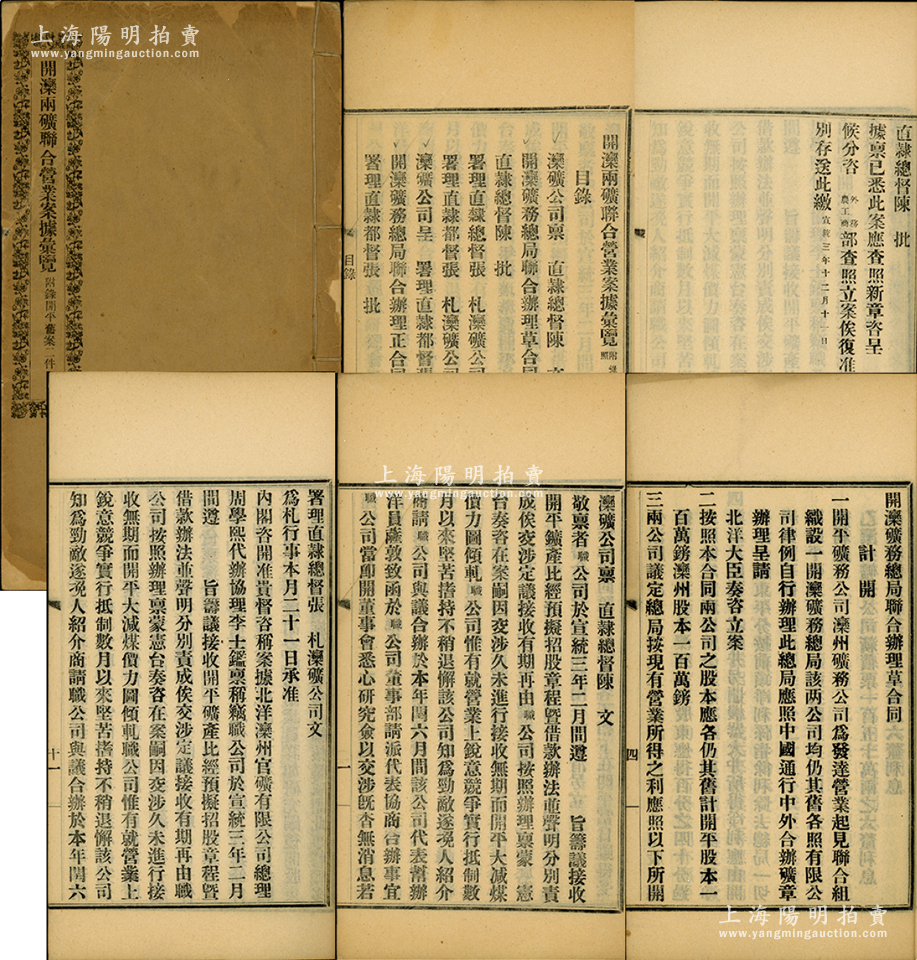 上海陽明拍賣
www.yangmingauction.com
開灤兩礦聯合營業案據彙覽 附錄開平舊案二件
上海陽明拍賣
www.yangmingauction.com
開灤兩礦聯合營業案據彙覽
目錄
灤礦公司稟 直隷總督陳 文
開灤礦務總局聯合辦理草合同
直隷總督陳 批
署理直隷總督張 札灤礦公司
署理直隷都督張 札灤礦公
灤礦公司呈 署理直隷都督張
開灤礦務總局聯合辦理正合同
署理直隷都督張 批
目錄
直隷總督陳 批
據稟已悉此案應查照新章咨呈
候分咨 外務 農工商 部查照立案俟復准
別存送此繳 宣統三年十二月十一日
署理直隷總督張 札灤礦公司文
為札行事本月二十一日承准
內閣咨開准貴督咨稱案據北洋灤州官礦有限公司總理
周學熙代辦協理李士鑑稟稱竊職公司於宣統三年二月
間遵 旨籌議接收開平礦產比經預擬招股章程曁
借款辦法並聲明分別責成俟交涉定議接收有期再由職
公司按照辦理稟蒙憲台奏咨在案嗣因交涉久未進行接
收無期而開平大減煤價力圖傾軋職公司惟有就營業上
銳意競爭實行抵制數月以來堅苦搘持不稍退懈該公司
知為勁敵遂浼人紹介商請職公司與議合辦於本年閏六
十一
上海陽明拍賣
www.yangmingauction.com
灤礦公司稟 直隷總督陳 文
敬稟者職公司於宣統三年二月間遵 旨籌議接收
開平鑛產比經預擬招股章程曁借款辦法並聲明分別責
成俟交涉定議接收有期再由職公司按照辦理稟蒙 憲
台奏咨在案嗣因交涉久未進行接收無期而開平大減煤
價力圖傾軋職公司惟有就營業上銳意競爭實行抵制數
月以來堅苦搘持不稍退懈該公司知為勁敵遂浼人紹介
商請職公司與議合辦於本年閏六月間該公司代表幫辦
洋員薩敦致函於職公司董事部請派代表協商合辦事宜
職公司當即開董事會悉心研究僉以交涉旣杳無消息若
一
開灤礦務總局聯合辦理草合同
計開
一開平礦務公司灤州礦務公司為發達營業起見聯合組
織設一開灤礦務總局該兩公司均仍其舊各照有限公
司律例自行辦理此總局應照中國通行中外合辦礦章
辦理呈請
北洋大臣奏咨立案
二按照本合同兩公司之股本應各仍其舊計開平股本一
百萬鎊灤州股本一百萬鎊
三兩公司議定總局按現有營業所得之利應照以下所開
四
上海陽明拍賣
www.yangmingauction.com